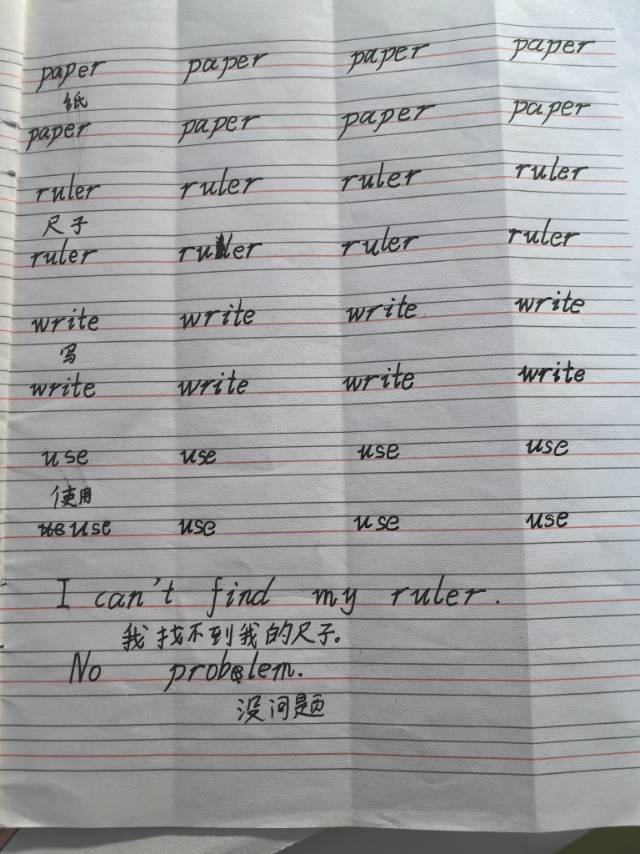 paper paper paper paper
纸
paper paper paper paper
ruler ruler ruler ruler
尺子
ruler ruler ruler ruler
write write write write
写
write write write write
use use use use
使用
use use use use
I can't find my ruler.
我找不到我的尺子。
No problem.
没问题